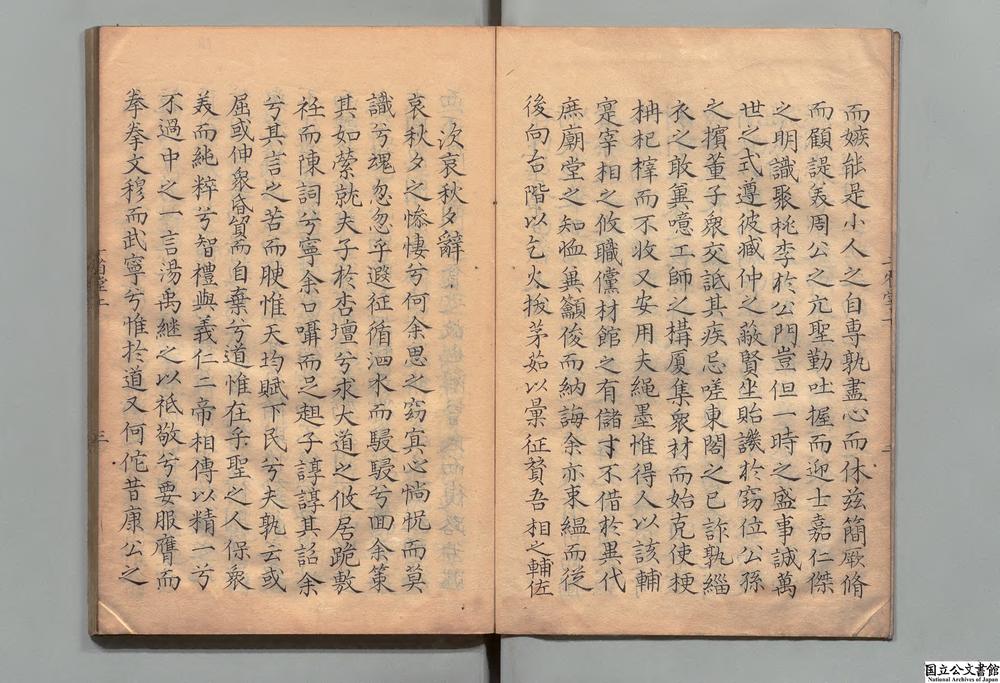 而嫉能是小人之自專孰盡心而休茲簡厥脩
而顧諟義周公之亢聖勤吐握而迎士嘉仁傑
之明識聚桃李於公門豈但一時之盛事誠萬
世之式遵彼臧仲之蔽賢坐貽譏於竊位公孫
之擯董子衆交詆其疾忌嗟東閤之已詐孰緇
衣之敢冀噫工師之構厦集衆材而始克使梗
柟杞梓而不收又安用夫繩墨惟得人以該輔
寔宰相之攸職儻材館之有儲才不借於異代
庶廟堂之知恤無籲俊而納誨余亦束縕而從
後向台階以乞火拔茅茹以彙征賛吾相之輔佐
次哀秋夕辭
哀秋夕之慘悽兮何余思之窈㝠心惝怳而莫
識兮魂忽忽乎遐征循泗水而駸駸兮回余策
其如縈就夫子於杏壇兮求大道之攸居跪敷
衽而陳詞兮寧余口囁而足趄子諄諄其詔余
兮其言之苦而腴惟天均賦下民兮夫孰云或
屈或伸衆昏貿而自棄兮道惟在乎聖之人保衆
義而純粹兮智禮與義仁二帝相傳以精一兮
不過中之一言湯禹継之以祗敬兮要服膺而
拳拳文穆而武寧兮惟於道又何佗昔康公之
三
国立公文書館
National Archives of Japan